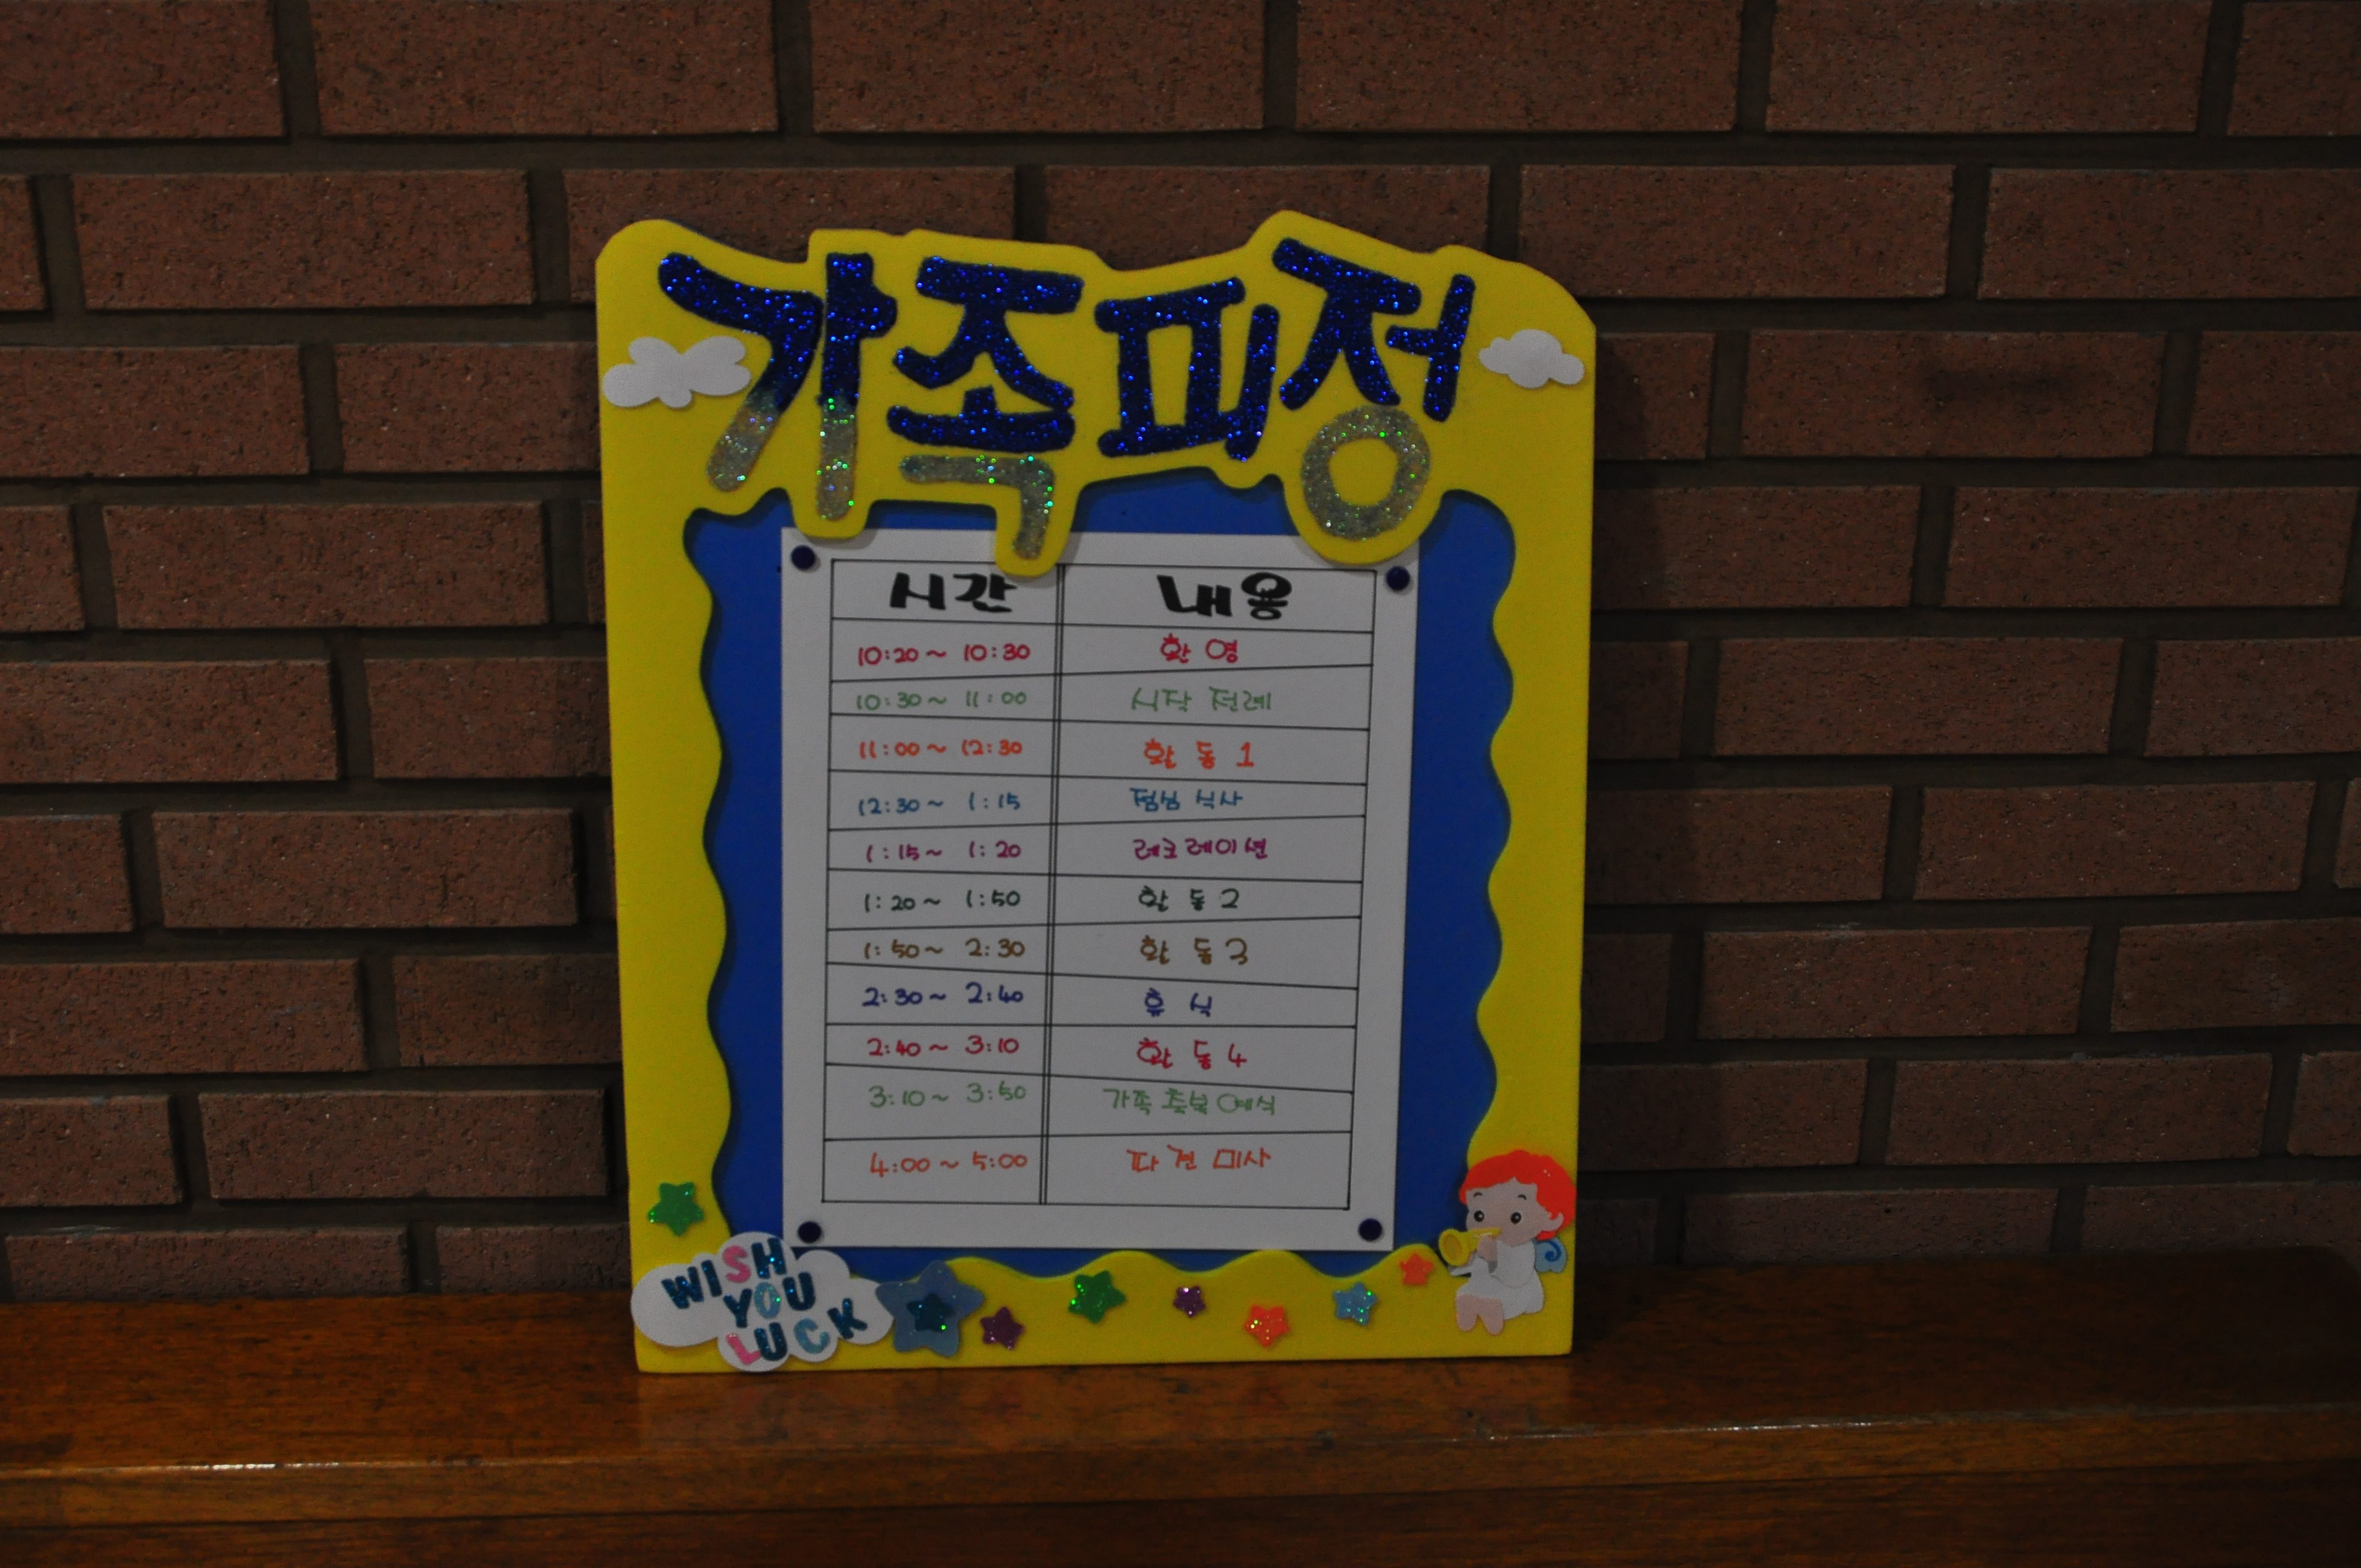 가족피정
시간 내용
10:20 ~ 10:30 환영
10:30 ~ 11:00 시작 전례
11:00 ~ 12:30 활동 1
12:30 ~ 1:15 점심 식사
1:15 ~ 1:20 레크레이션
1:20 ~ 1:50 활동 2
1:50 ~ 2:30 활동 3
2:30 ~ 2:40 휴식
2:40 ~ 3:10 활동 4
3:10 ~ 3:50 가족 축복 예식
4:00 ~ 5:00 파견 미사
WISH
YOU
LUCK